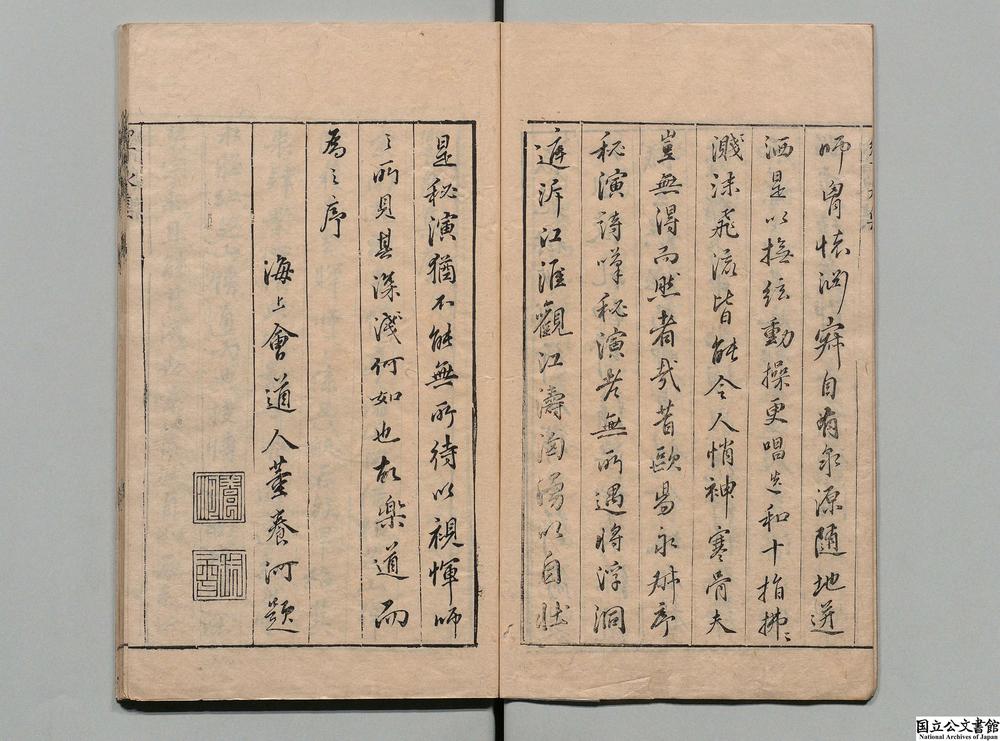 師胷懷淵窅自有泉源随地迸
洒是以撫絃動操更唱迭和十指拂〻
濺沫飛流皆能令人悄神寒骨夫
豈無得而然者哉昔歐昜永叔序
秘演詩嘆秘演老無所遇將浮洞
遊泝江淮觀江濤洶湧以自壯
是秘演猶不能無所待以視惲師
之所見其深淺何如也故樂道而
為之序
海上會道人董養河題
国立公文書館
National Archives of Japan